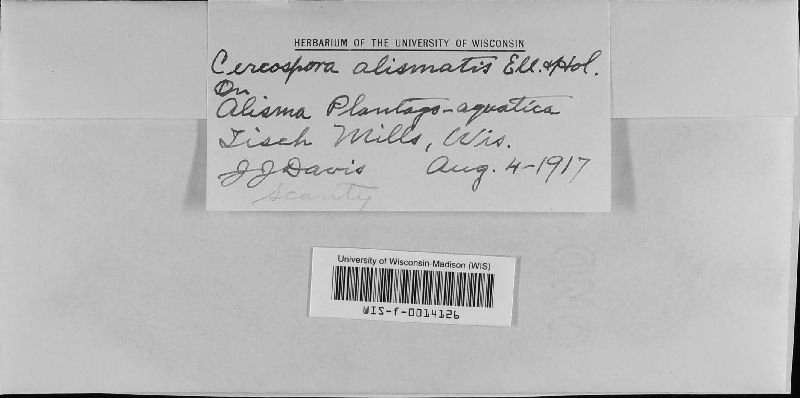 HERBARIUM OF THE UNIVERSITY OF WISCONSIN
Cercospora alismatis Ell. & Hol.
On
Alisma Plantago-aquatica
Tisch Mills, Wis.
J J Davis Aug. 4-1917
Scanty
University of Wisconsin-Madison (WIS)
WIS-f-0014126